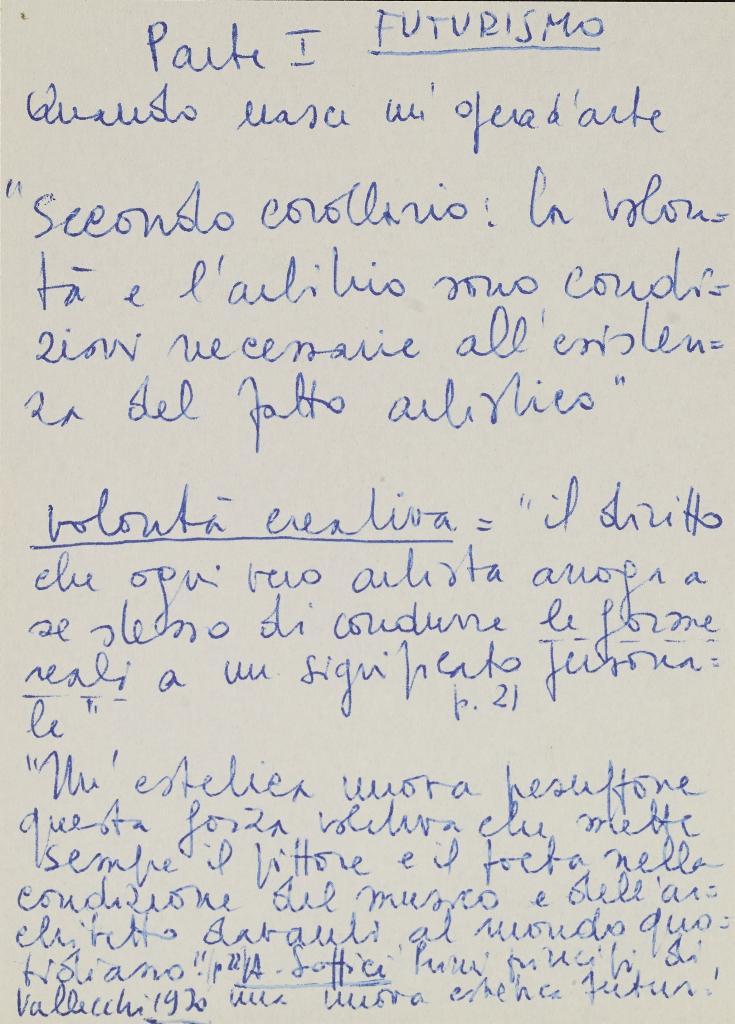 Parte I FUTURISMO
Quando nasce un'opera d'arte
"Secondo corollario: la volon=
tà e l'arbitrio sono condi=
zioni necessarie all'esisten=
za del fatto artistico"
volontà creativa = "il diritto
che ogni vero artista arroga a
se stesso di condurre le forme
reali a un significato persona=
le" p. 21
"Un'estetica nuova presuppone
questa forza volitiva che mette
sempre il pittore e il poeta nella
condizione del musico e dell'ar=
chitetto davanti al mondo quo=
tidiano"/p 22/A. Soffici Primi principi di
Vallecchi 1920 una nuova estetica futur.